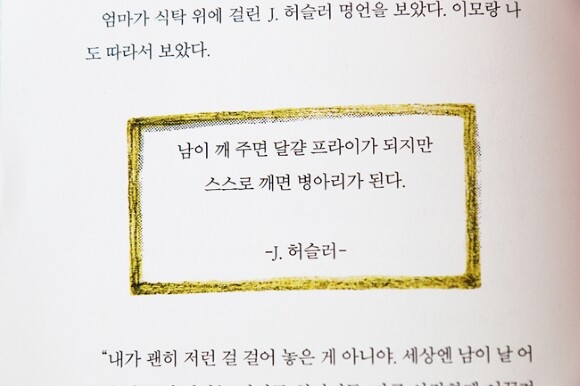 엄마가 식탁 위에 걸린 J. 허슬러 명언을 보았다. 이모랑 나
도 따라서 보았다.
남이 깨 주면 달걀 프라이가 되지만
스스로 깨면 병아리가 된다.
-J. 허슬러-
“내가 괜히 저런 걸 걸어 놓은 게 아니야. 세상엔 남이 날 어